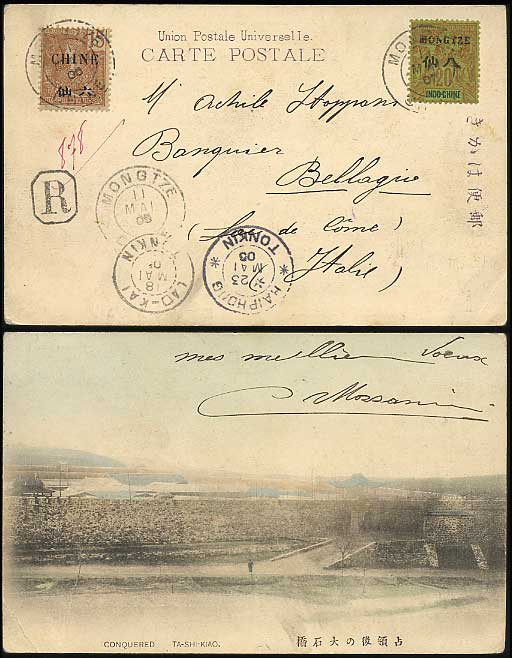 Union Postale Universelle.
CARTE POSTALE
CHINE
仙六
MONGTZE
仙八
20
INDO-CHINE
898
R
Achile
Banquier
Bellagio
(Lac de Côme)
Italie
きがは便郵
MONGTZE
11
MAI
05
LAO-KAI
TONKIN
18
MAI
05
HAIPHONG
TONKIN
23
MAI
05
mes meilleurs voeux
CONQUERED TA-SHI-KIAO.
占領後の大石橋